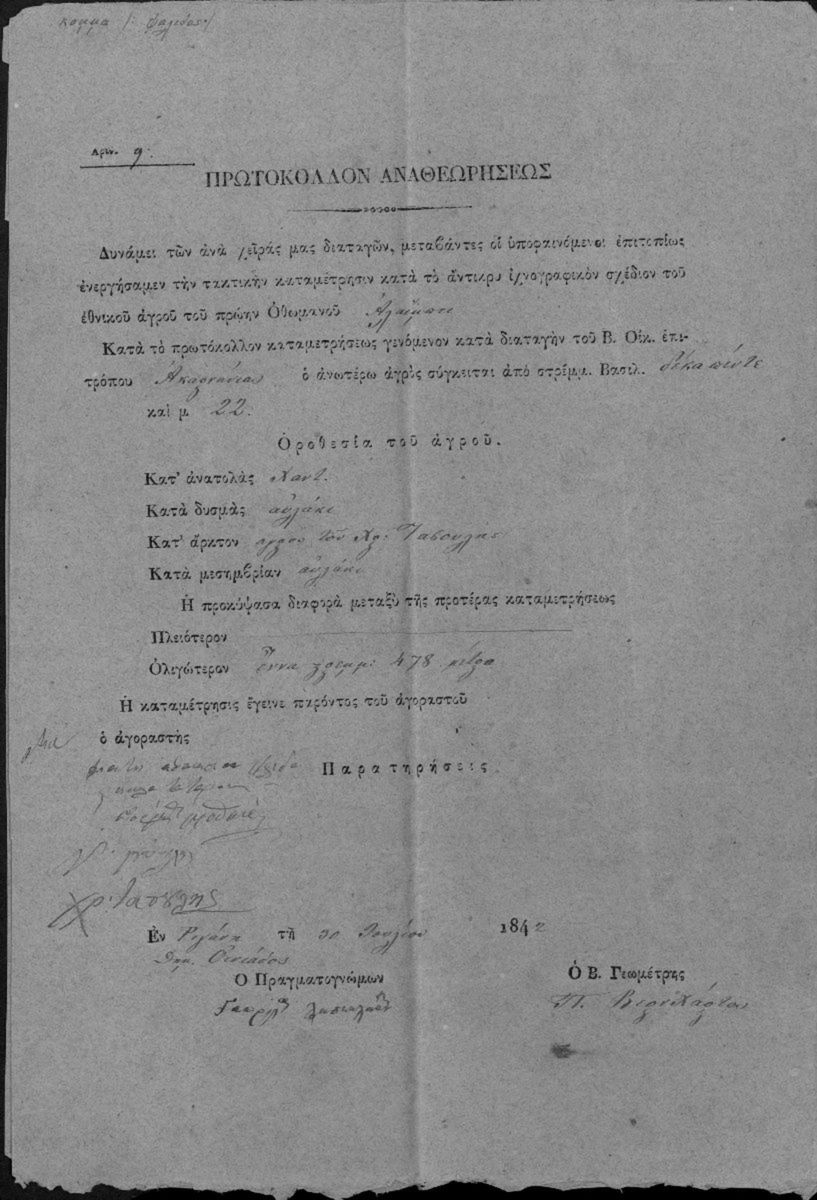 κομμα /: ψαλιδας:/
Αριθ. 9:
ΠΡΩΤΟΚΟΛΛΟΝ ΑΝΑΘΕΩΡΗΣΕΩΣ
Δυνάμει τῶν ἀνὰ χεῖράς μας διαταγῶν, μεταβάντες οἱ ὑποφαινόμενοι ἐπιτοπίως
ἐνεργήσαμεν τὴν τακτικὴν καταμέτρησιν κατὰ τὸ ἄντικρυ ἰχνογραφικὸν σχέδιον τοῦ
ἐθνικοῦ ἀγροῦ τοῦ πρώην Ὀθωμανοῦ
Κατὰ τὸ πρωτόκολλον καταμετρήσεως γενόμενον κατὰ διαταγὴν τοῦ Β. Οἰκ. ἐπι-
τρόπου Ἀκαρνανίας ὁ ἀνωτέρω ἀγρὸς σύγκειται ἀπὸ στρέμμ. Βασιλ. δέκα πέντε
καὶ μ 22.
Ὁροθεσία τοῦ ἀγροῦ.
Κατ' ἀνατολὰς χανδ.
Κατὰ δυσμὰς αὐλάκι
Κατ' ἄρκτον αγρος τοῦ Χρ: Τασουλης
Κατὰ μεσημβρίαν αὐλάκι
Ἡ προκύψασα διαφορὰ μεταξὺ τῆς προτέρας καταμετρήσεως
Πλειότερον
Ὀλιγώτερον ἕννα στρεμμ: 478 μέτρα
Ἡ καταμέτρησις ἔγεινε παρόντος τοῦ ἀγοραστοῦ
ὁ ἀγοραστὴς
Παρατηρήσεις
χρ. τασȣλης
Ἐν τῇ 30 Ἰουλίου 1842
Δημ. Οἰνιάδος
Ὁ Πραγματογνώμων
Ὁ Β. Γεωμέτρης
Γαυριλ
Π.